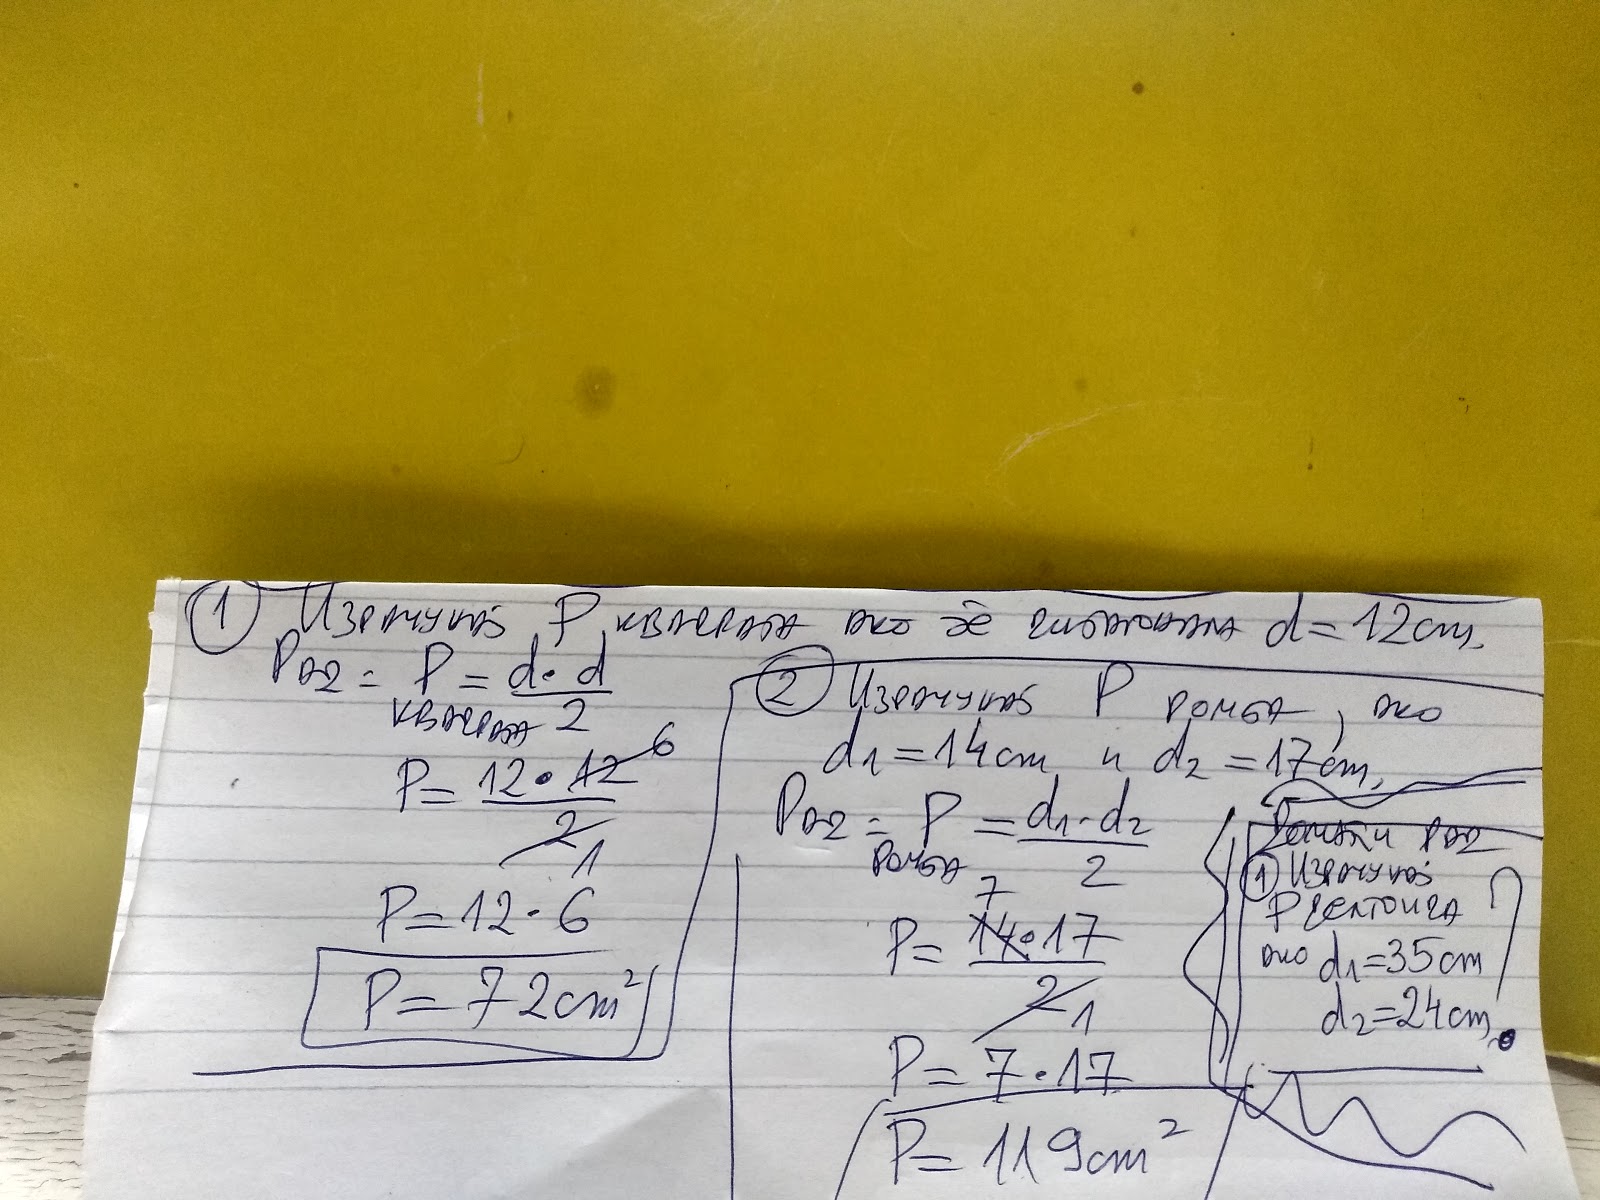 ① Израчунај P квадрата ако је дијагонала d=12cm.
Рад: P квадрата = d·d/2
P= 12·12/2 6 1
P=12·6
P=72cm²
② Израчунај P ромба, ако
d1=14cm и d2=17cm.
Рад: P ромба = d1·d2/2
P= 14·17/2 7 1
P=7·17
P=119cm²
Домаћи рад
① Израчунај
P делтоида
ако d1=35cm
d2=24cm.